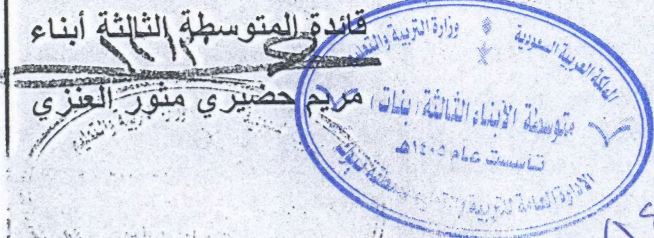 قائدة المتوسطة الثالثة أبناء
مريم حضيري مثور العنزي
المملكة العربية السعودية
وزارة التربية والتعليم
متوسطة الأبناء الثالثة (بنات)
تأسست عام ١٤٠٥هـ
الإدارة العامة للتربية والتعليم بمنطقة تبوك